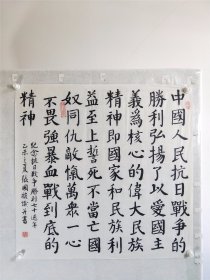 中國人民抗日戰爭的
勝利弘揚了以愛國主
義爲核心的偉大民族
精神即國家和民族利
益至上誓死不當亡國
奴同仇敵愾萬衆一心
不畏強暴血戰到底的
精神
紀念抗日戰爭勝利七十週年
乙未之夏張國